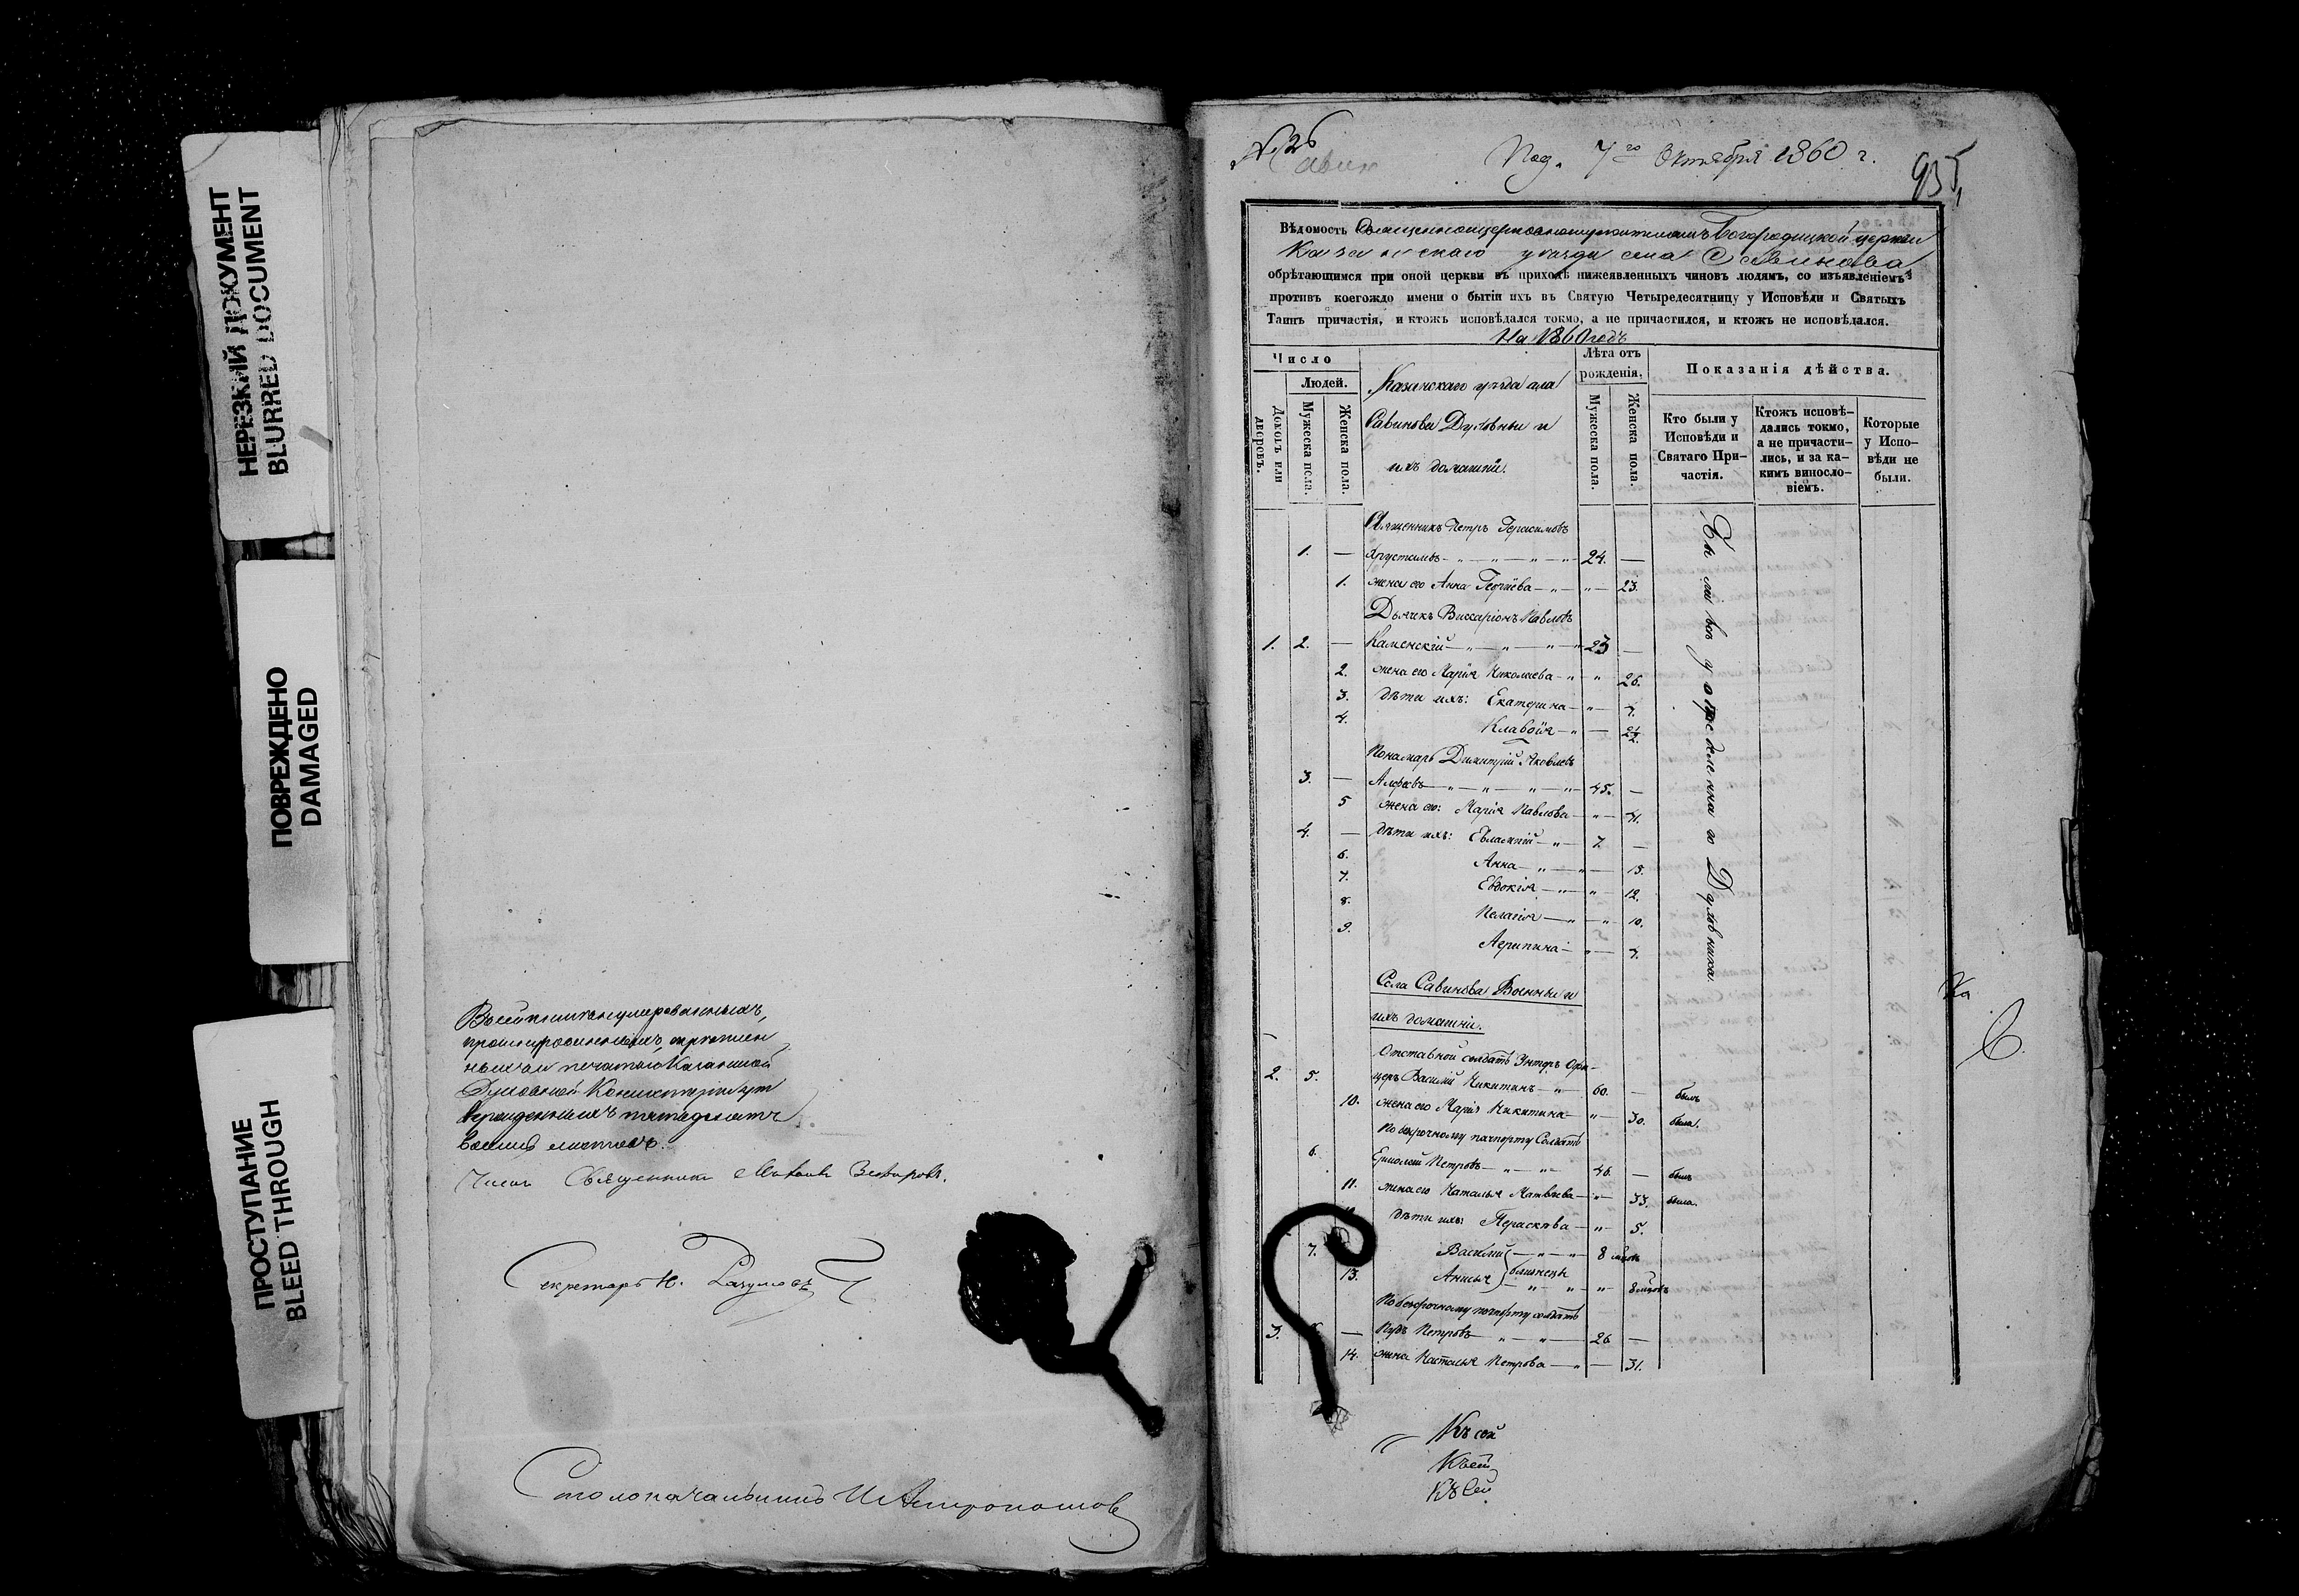 НЕРЕЗКИЙ ДОКУМЕНТ
BLURRED DOCUMENT
ПОВРЕЖДЕНО
DAMAGED
ПРОСТУПАНИЕ
BLEED THROUGH
печатью Казанской
Духовной Консисторіи
Членъ Священникъ
Секретарь Н. Разумовъ
Столоначальникъ И Антропоповъ
№ 26
Под. 7го Октября 1860 г.
935
Вѣдомость Священноцерковнослужителей Богородицкой церкви
Казанскаго уѣзда села Савинова
обрѣтающимся при оной церкви въ приходѣ нижеявленныхъ чиновъ людямъ, со изъявленіемъ
противъ коегождо имени о бытіи ихъ въ Святую Четыредесятницу у Исповѣди и Святыхъ
Таинъ причастія, и ктожъ исповѣдался токмо, а не причастился, и ктожъ не исповѣдался.
На 1860 годъ
Число
Людей.
Домовъ или дворовъ.
Мужеска пола.
Женска пола.
Казанскаго уѣзда села
Савинова Духовные и
ихъ домашніе.
Лѣта отъ рожденія.
Мужеска пола.
Женска пола.
Показанія дѣйства.
Кто были у Исповѣди и Святаго Причастія.
Ктожъ исповѣдались токмо, а не причастились, и за какимъ винословіемъ.
Которые у Исповѣди не были.
Священникъ Петръ Герасимовъ
1. — Хрусталевъ 24. —
1. жена его Анна 23.
Дьячекъ Виссаріонъ Павловъ
1. 2. — Каменскій 23 —
2. жена его Марія Николаева 26.
3. дѣти ихъ: Екатерина 4.
4. Клавдія
Пономарь Димитрій Яковлевъ
3. — Алфеевъ 45. —
5 жена его: Марія Павлова 41.
4. — дѣти ихъ: Евлампій 7. —
6. Анна 15.
7. Евдокія 12.
8. Пелагія 10.
9. Агрипина 4.
Были всѣ у опредѣленнаго Духовника.
Села Савинова Военные и
ихъ домашніе.
Отставной солдатъ Унтеръ Офи-
2. 5. церъ Василій Никитинъ 60. — былъ
10. жена его Марія Никитина 30. была.
По безсрочному паспорту Солдатъ
6. Ермолай Петровъ 46. — былъ
11. жена его Наталья Матвѣева 33. была.
дѣти ихъ: Параскева 5.
7. Василій близнецы 8 мѣсяц
13. Анисья 8 мѣсяц
По безсрочному паспорту солдатъ
3. — Петровъ 26 —
14. жена Наталья Петрова 31.
Къ сей
Къ сей
Къ сей